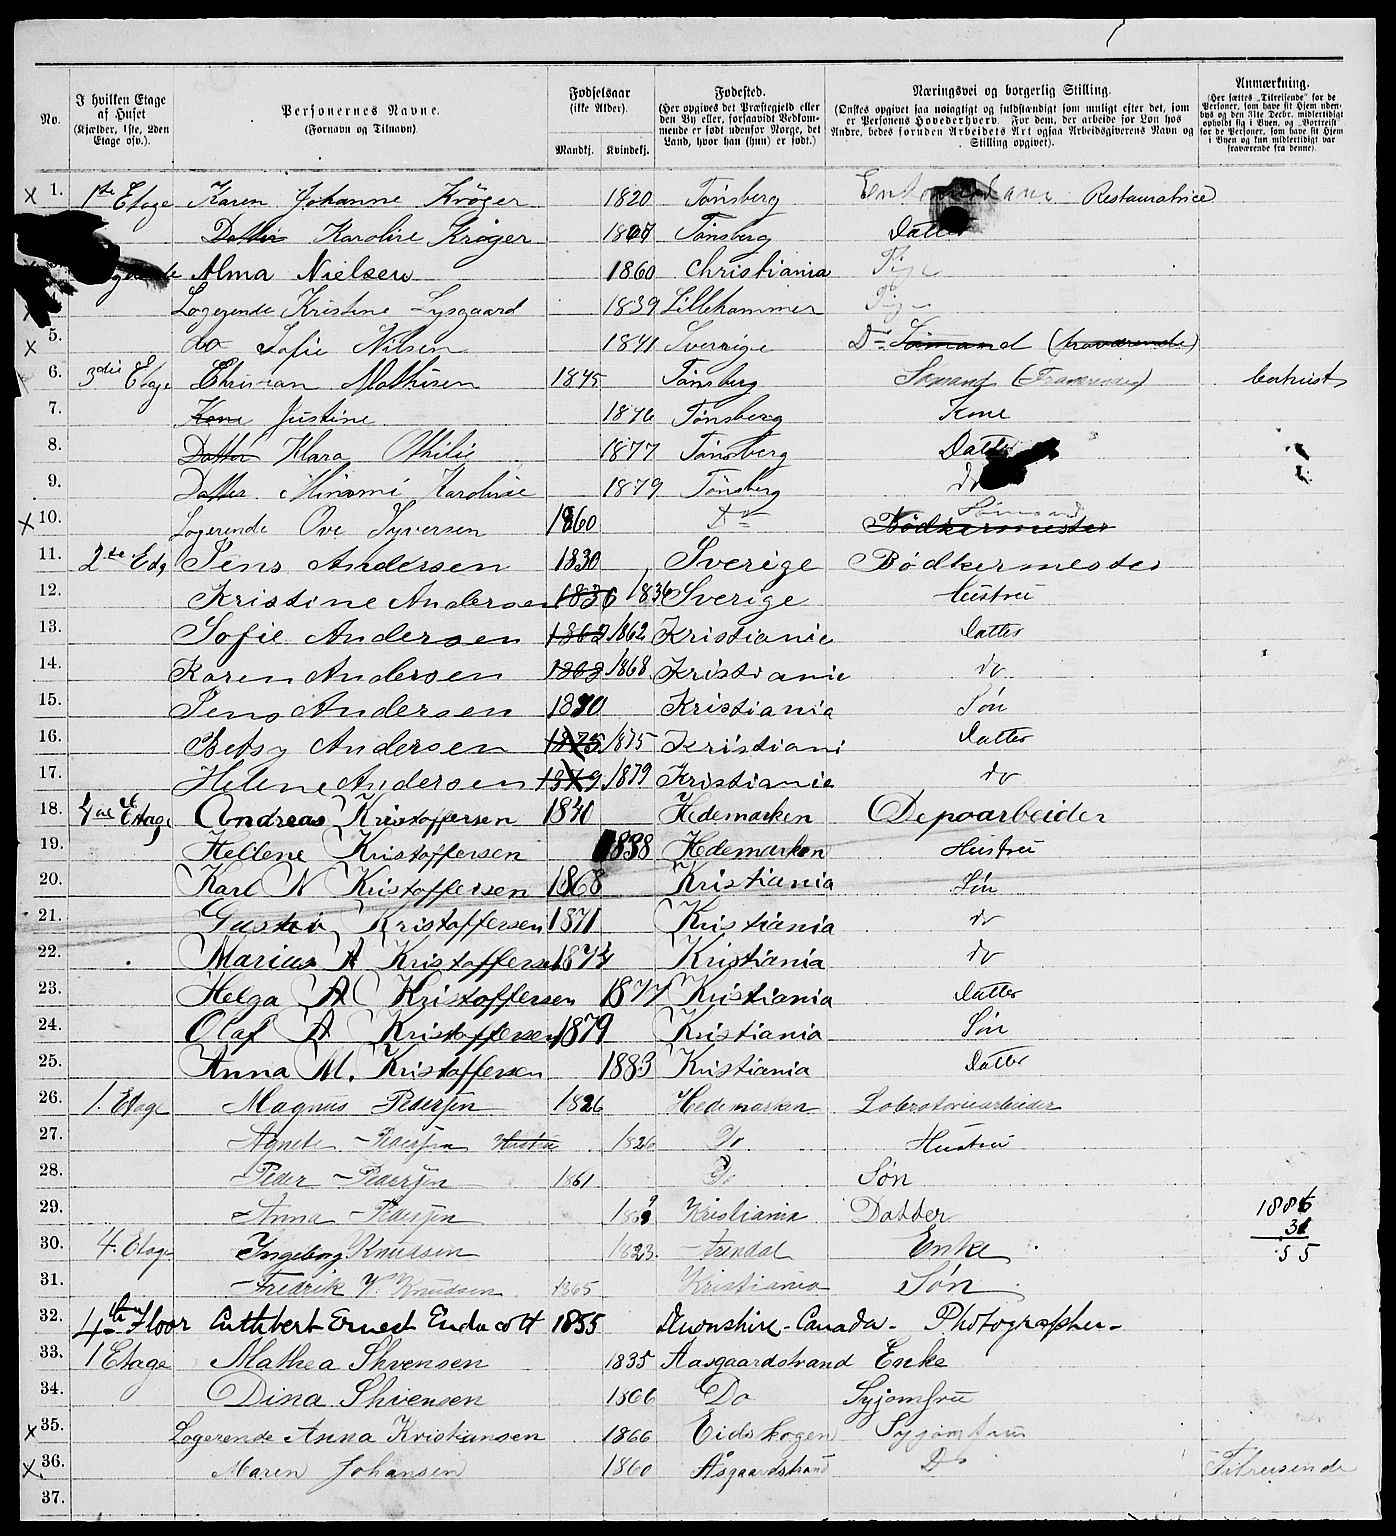 No. I hvilken Etage af Huset (Kjælder, 1ste, 2den Etage osv.). Personernes Navne. (Fornavn og Tilnavn). Fødselsaar (ikke Alder). Mandkj. Kvindekj. Fødested. (Her opgives det Præstegjeld eller den By eller, forsaavidt Vedkommende er født udenfor Norge, det Land, hvor han (hun) er født.) Næringsvei og borgerlig Stilling. (Ønskes opgivet saa nøiagtigt og fuldstændigt som muligt efter det, som er Personens Hovederhverv. For dem, der arbeide for Løn hos Andre, bedes foruden Arbeidets Art ogsaa Arbeidsgiverens Navn og Stilling opgivet). Anmærkning. (Her sættes „Tilreisende" for de Personer, som have sit Hjem udenbys og den 31te Decbr. midlertidigt opholdt sig i Byen, og „Bortreist" for de Personer, som have sit Hjem i Byen og kun midlertidigt var fraværende fra denne).
x 1. 1ste Etage Karen Johanne Krøger 1820 Tønsberg Restauratrice
Datter Karoline Krøger Tønsberg Datter
Alma Nielsen 1860 Christiania
Logerende Kristine Lysgaard 1839 Lillehammer
x 5. do Sofie Nilsen 1841 Sverrige Do Sømand (fraværende)
6. 3die Etage Christian Mathisen 1845 Tønsberg Sømand (Fraværende) bortreist
7. Kone Justine 1876 Tønsberg Kone
8. Datter Klara Othilie 1877 Tønsberg Datter
9. Datter Minnmi Karoline 1879 Tønsberg do
x 10. Logerende Ove Syversen 1860 Do Bødkermester Sømand
11. 2de Etg Jens Andersen 1830 Sverige Bødkermester
12. Kristine Andersen 1836 1836 Sverige Hustru
13. Sofie Andersen 1862 1862 Kristianie Datter
14. Karen Andersen 1868 Kristianie do
15. Jens Andersen 1870 Kristiania Søn
16. Betsy Andersen 1875 1875 Kristiani Datter
17. Helene Andersen 1879 1879 Kristianie do
18. 4de Etage Andreas Kristoffersen 1840 Hedemarken Depoarbeider
19. Hellene Kristoffersen 1838 Hedemarken Hustru
20. Karl N Kristoffersen 1868 Kristiania Søn
21. Gustav Kristoffersen 1871 Kristiania do
22. Marius A Kristoffersen 1874 Kristiania do
23. Helga A Kristoffersen 1877 Kristiania Datter
24. Olaf A Kristoffersen 1879 Kristiania Søn
25. Anna M. Kristoffersen 1883 Kristiania Datter
26. 1. Etage Magnus Pedersen 1826 Hedemarken Loboratoriearbeider
27. Agnete Pedersen Hustru 1826 Do Hustru
28. Peder Pedersen 1861 Do Søn
29. Anna Pedersen Kristiania Datter 1886
30. 4. Etage Ingeborg Knudsen 1823 Arendal Enke 31
55
31. Fredrik V. Knudsen 1865 Kristiania Søn
32. 4th Floor Cuthbert Ernest Endacott 1855 Devonshire - Canada - Photographer -
33. 1 Etage Mathea Shvensen 1835 Aasgaardstrand Enke
34. Dina Shvensen 1866 Do Syjomfru
x 35. Logerende Anna Kristiansen 1866 Eidskogen Syjomfru
x 36. Maren Johansen 1860 Åsgaardstrand Do Tilreisende
37.